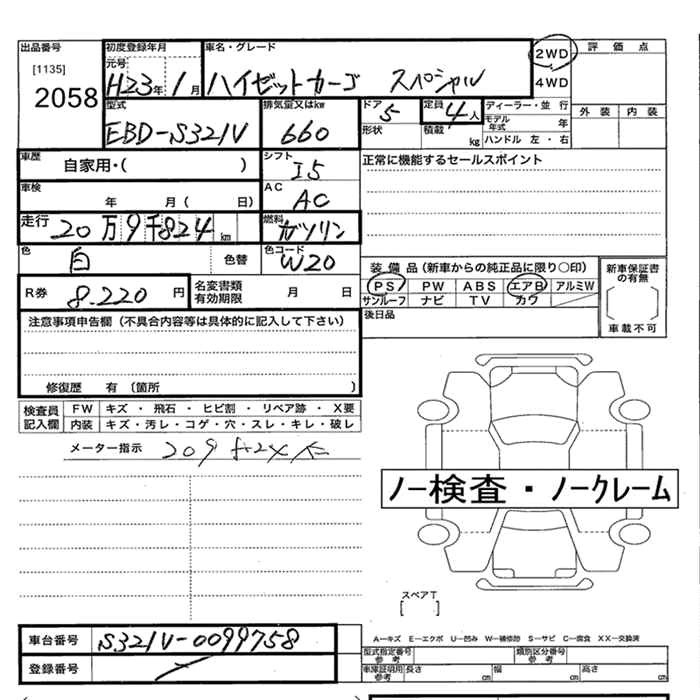 出品番号 初度登録年月 車名・グレード 2WD 評価点
[1135] 元号 4WD
2058 H23年 1月 ハイゼットカーゴ スペシャル
型式 排気量又はkw ドア 定員 ディーラー・並行 外装 内装
EBD-S321V 660 5 4人 モデル年式 年
形状 積載 kg ハンドル 左・右
車歴 自家用・( ) シフト I5 正常に機能するセールスポイント
車検 年 月( 日) AC AC
走行 20万9千824km 燃料 ガソリン
色 白 色替 色コード W20 装備品(新車からの純正品に限り○印) 新車保証書の有無
R券 8.220円 名変書類有効期限 月 日 PS PW ABS エアB アルミW
サンルーフ ナビ TV カワ 車載不可
注意事項申告欄(不具合内容等は具体的に記入して下さい) 後日品
修復歴 有(箇所 )
検査員記入欄 FW キズ・飛石・ヒビ割・リペア跡・X要
内装 キズ・汚レ・コゲ・穴・スレ・キレ・破レ
メーター指示
ノー検査・ノークレーム
スペアT
[ ]
車台番号 S321V-0099758 A-キズ E-エクボ U-凹み W-補修跡 S-サビ C-腐食 XX-交換済
登録番号 型式指定番号 参考 類別区分番号 参考
車庫証明用 参考 長さ cm 幅 cm 高さ cm